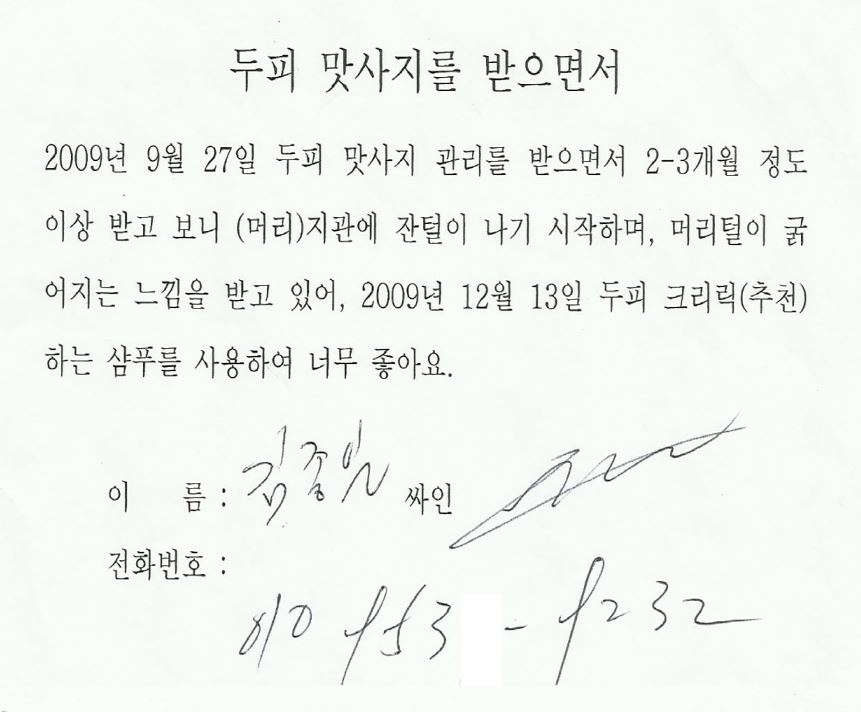 두피 맛사지를 받으면서
2009년 9월 27일 두피 맛사지 관리를 받으면서 2-3개월 정도
이상 받고 보니 (머리)지관에 잔털이 나기 시작하며, 머리털이 굵
어지는 느낌을 받고 있어, 2009년 12월 13일 두피 크리릭(추천)
하는 샴푸를 사용하여 너무 좋아요.
이 름 : 싸인
전화번호 :
010